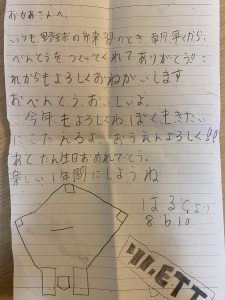 おかあさんへ、
いつも、野球の練習のとき朝早くから、
べんとうをつくってくれてありがとう!!こ
れからもよろしくおねがいします。
おべんとうおいしいよ。
今年もよろしくねぼくもきたい
にこたえるよ。おうえんよろしく!!
あとたん生日おめでとう。
楽しい1年間にしようね
はるとより
8.6.10